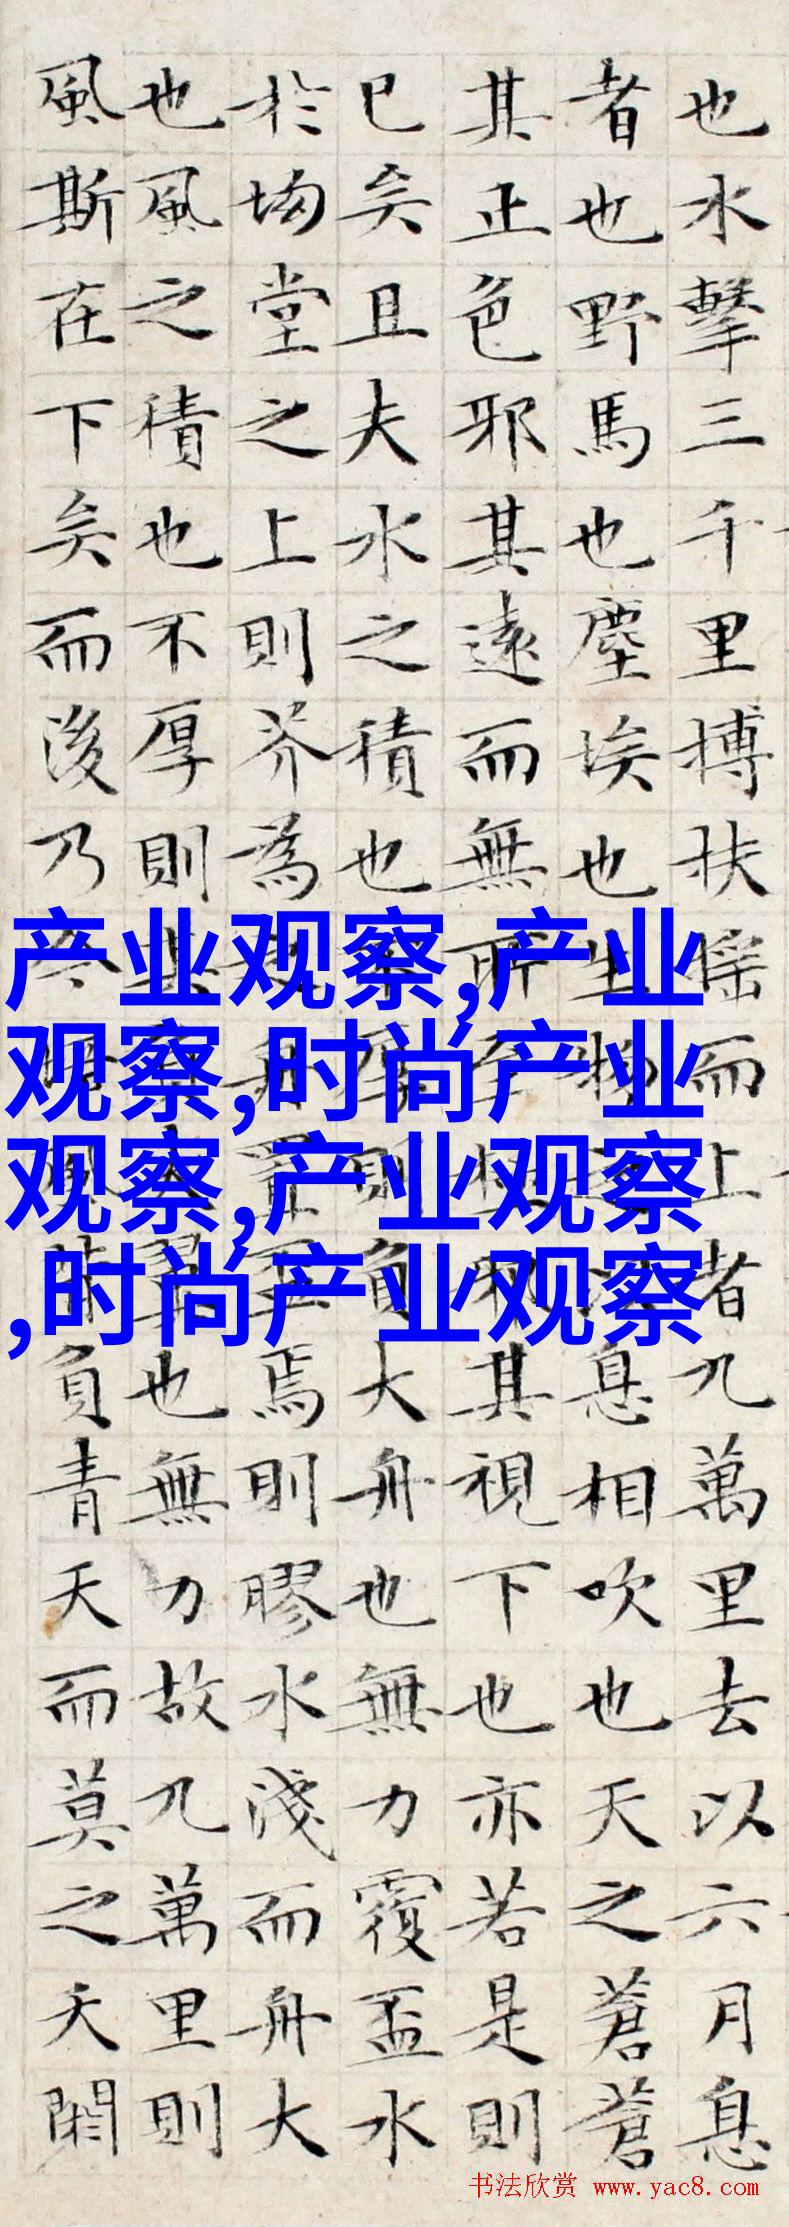 也水擊三千里搏扶摇而上者九萬里去以六月息
者也野馬也塵埃也生物之以息相吹也天之蒼蒼
其正色邪其遠而無所至極邪其視下也亦若是則
已矣且夫水之積也不厚則負大舟也無力覆盃水
於坳堂之上則芥為之舟置盃焉則膠水淺而舟大
也風之積也不厚則其負大翼也無力故九萬里則
風斯在下矣而後乃今培風背負青天而莫之夭閼
产业观察,产业
观察,时尚产业
观察,产业观察
,时尚产业观察
书法欣赏 www.yac8.com